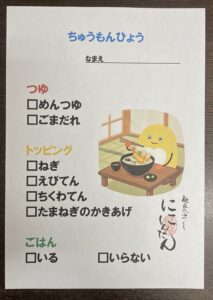 ちゅうもんひょう
なまえ
つゆ
□めんつゆ
□ごまだれ
トッピング
□ねぎ
□えびてん
□ちくわてん
□たまねぎのかきあげ
ごはん
□いる □いらない